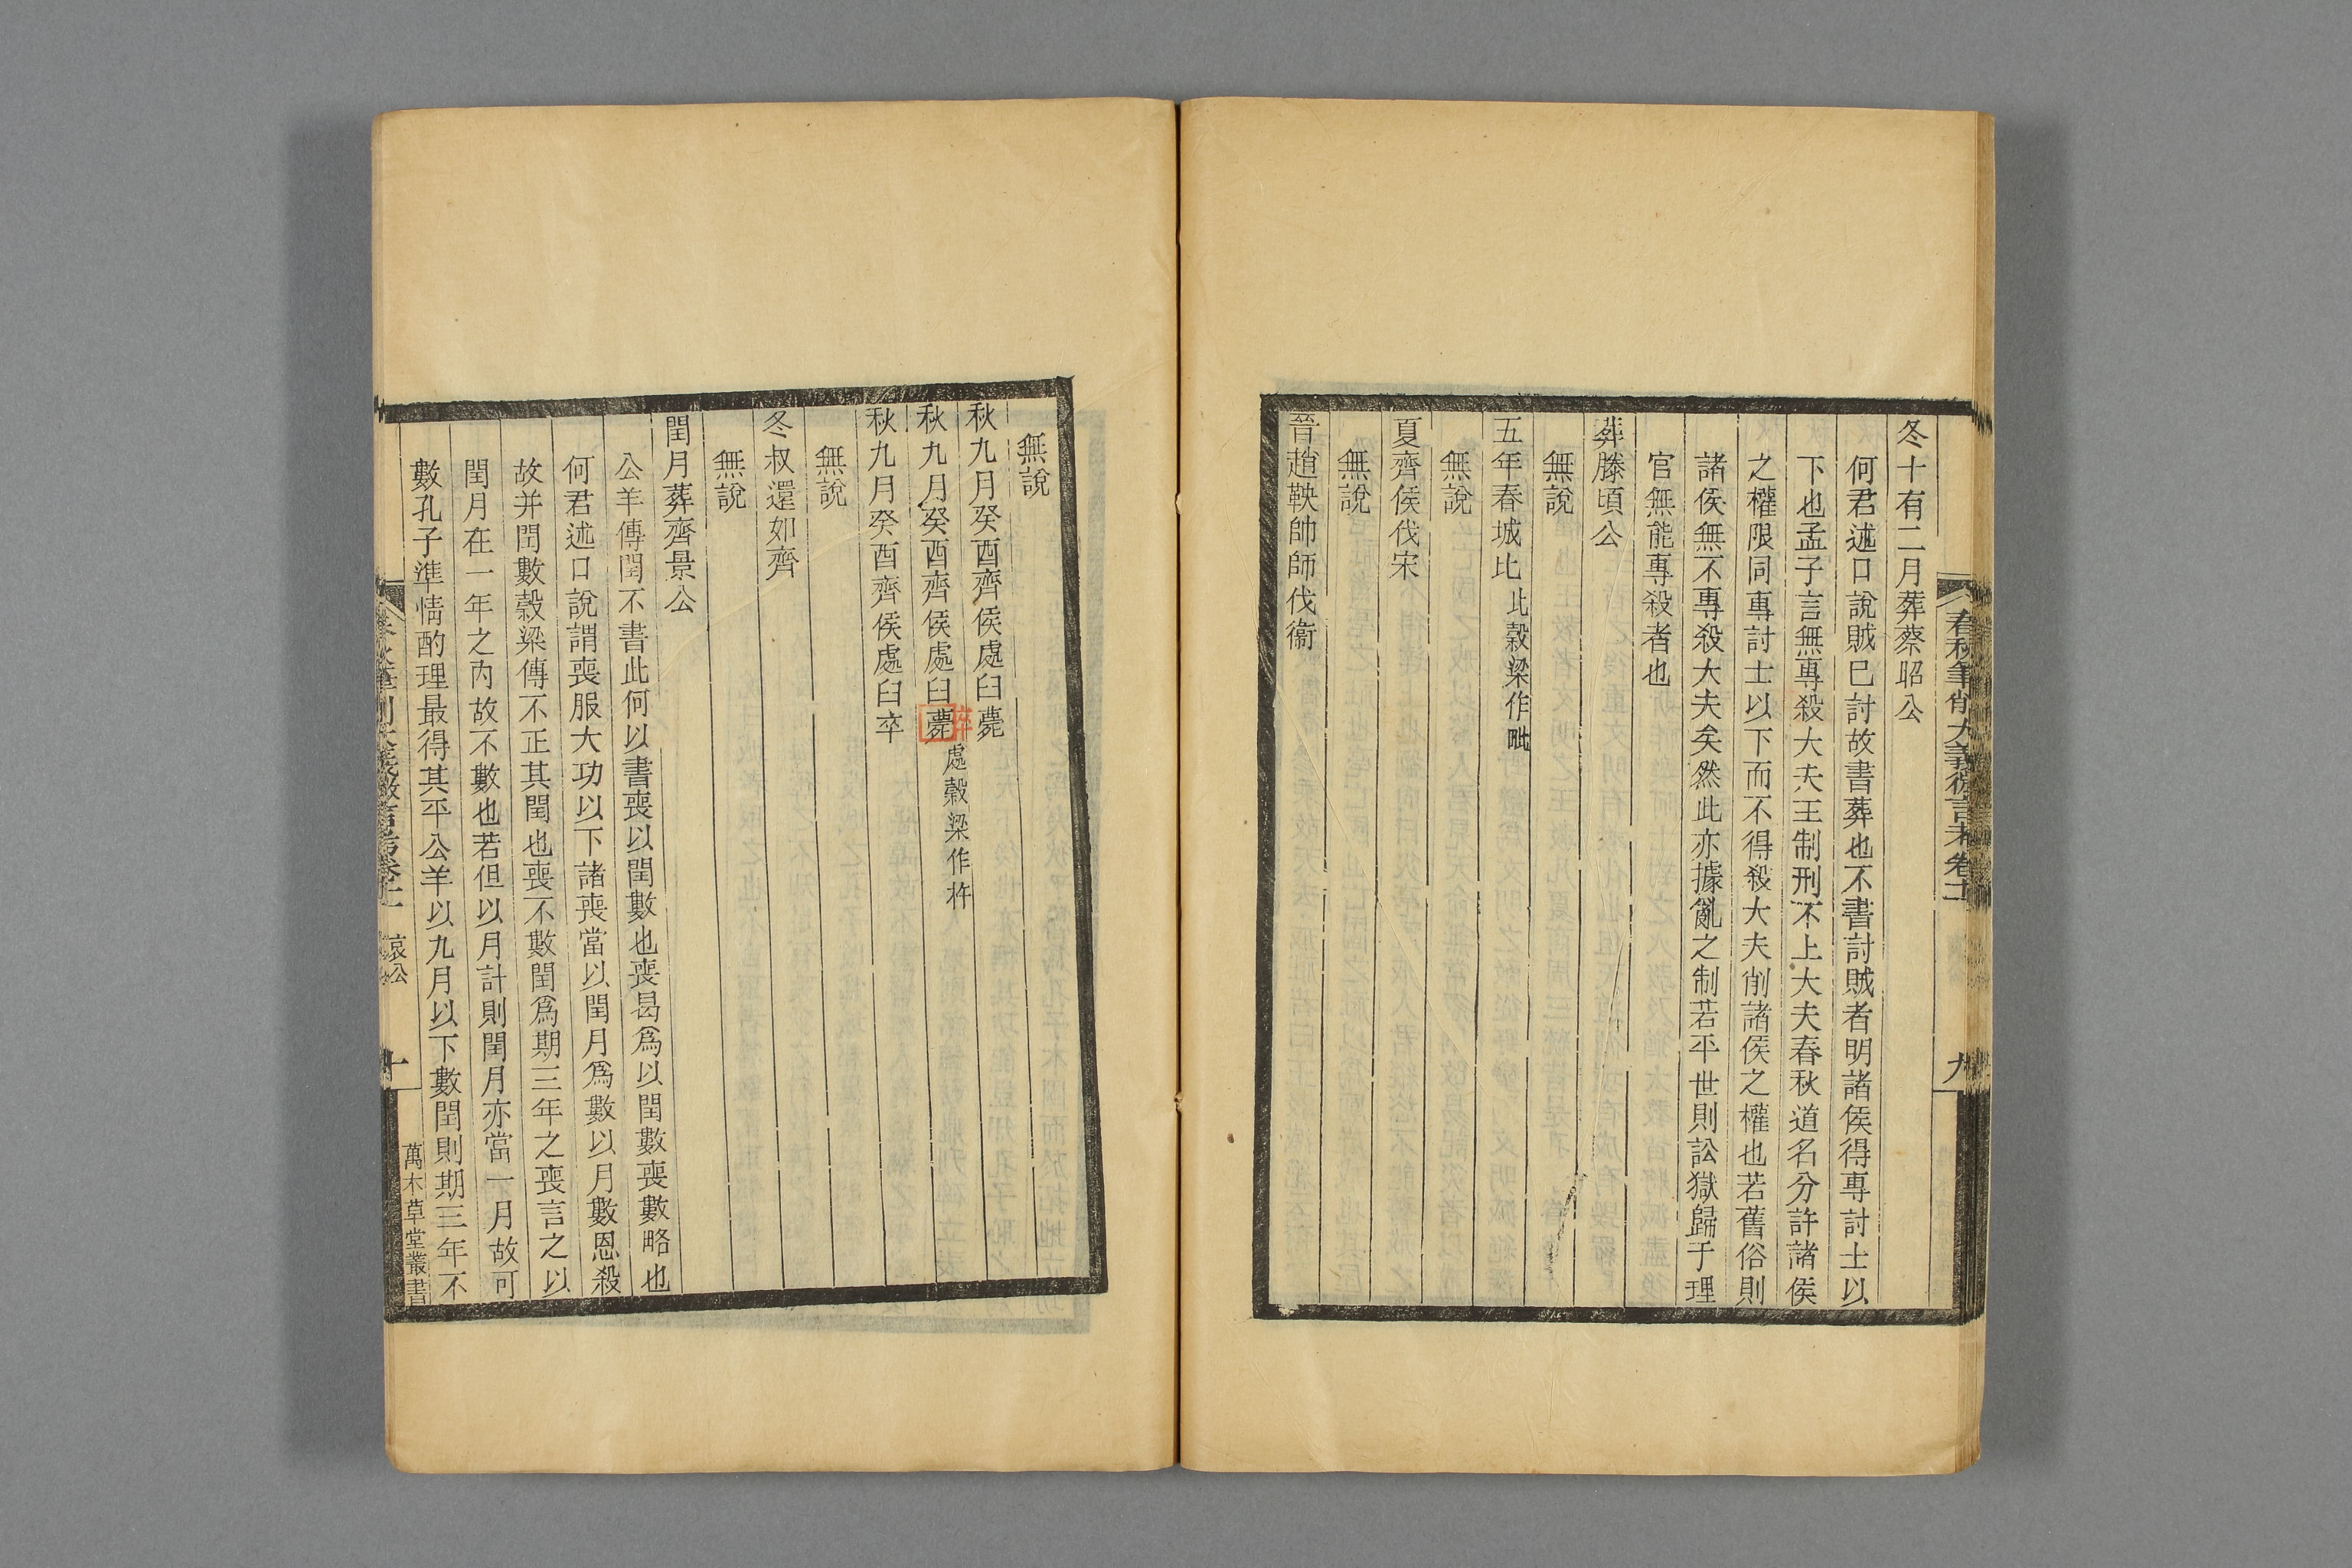 春秋筆削大義微言考卷十一
九
冬十有二月葬蔡昭公
何君述口說賊已討故書葬也不書討賊者明諸侯得專討士以
下也孟子言無專殺大夫王制刑不上大夫春秋道名分許諸侯
之權限同專討士以下而不得殺大夫削諸侯之權也若舊俗則
諸侯無不專殺大夫矣然此亦據亂之制若平世則訟獄歸于理
官無能專殺者也
葬滕頃公
無說
五年春城比 比穀梁作毗
無說
夏齊侯伐宋
無說
晉趙鞅帥師伐衞
無說
秋九月癸酉齊侯處臼薨
秋九月癸酉齊侯處臼薨 卒 處穀梁作杵
秋九月癸酉齊侯處臼卒
無說
冬叔還如齊
無說
閏月葬齊景公
公羊傳閏不書此何以書喪以閏數也喪曷爲以閏數喪數略也
何君述口說謂喪服大功以下諸喪當以閏月爲數以月數恩殺
故并閏數穀梁傳不正其閏也喪不數閏爲期三年之喪言之以
閏月在一年之內故不數也若但以月計則閏月亦當一月故可
數孔子準情酌理最得其平公羊以九月以下數閏則期三年不
春秋筆削大義微言考卷十一 哀公
十
萬木草堂叢書